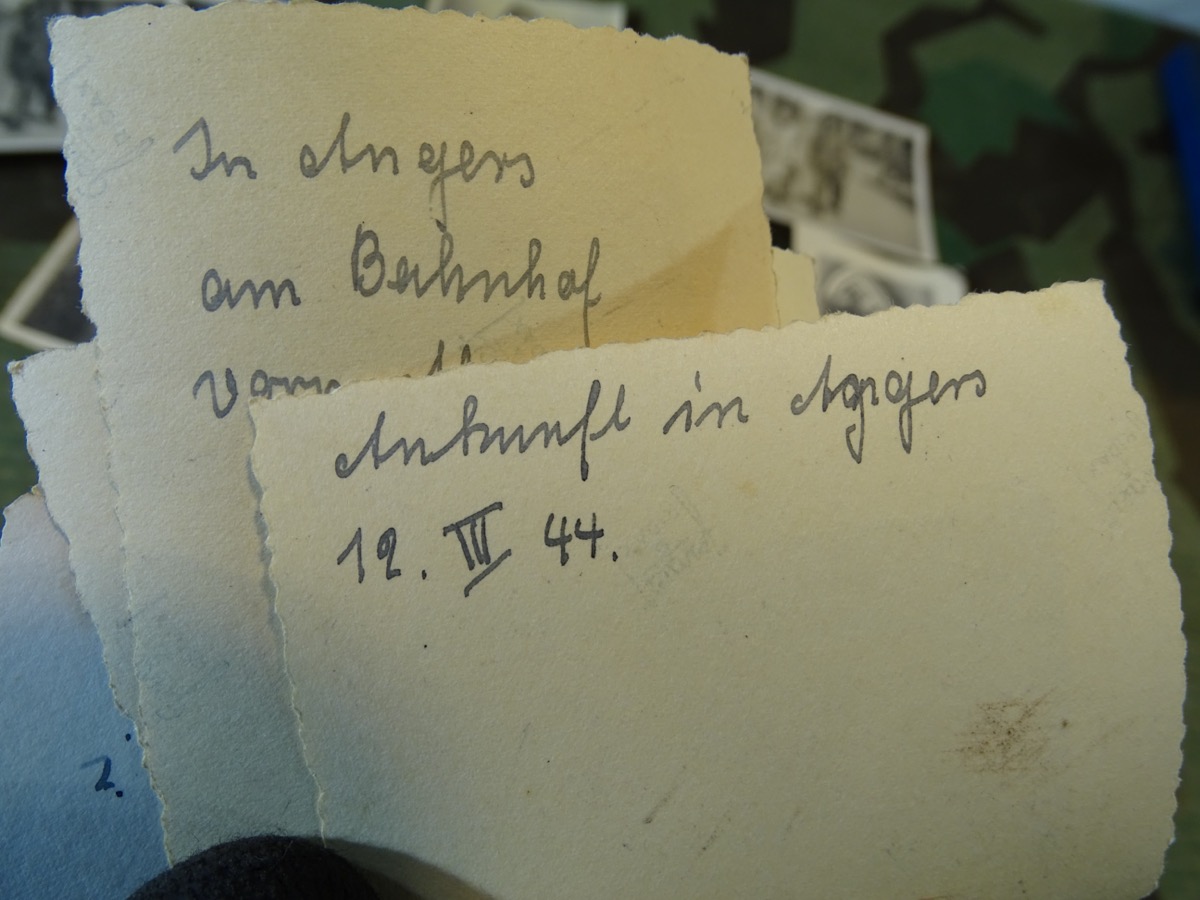 In Angers
am Bahnhof
Ankunft in Angers
12. III 44.
2.